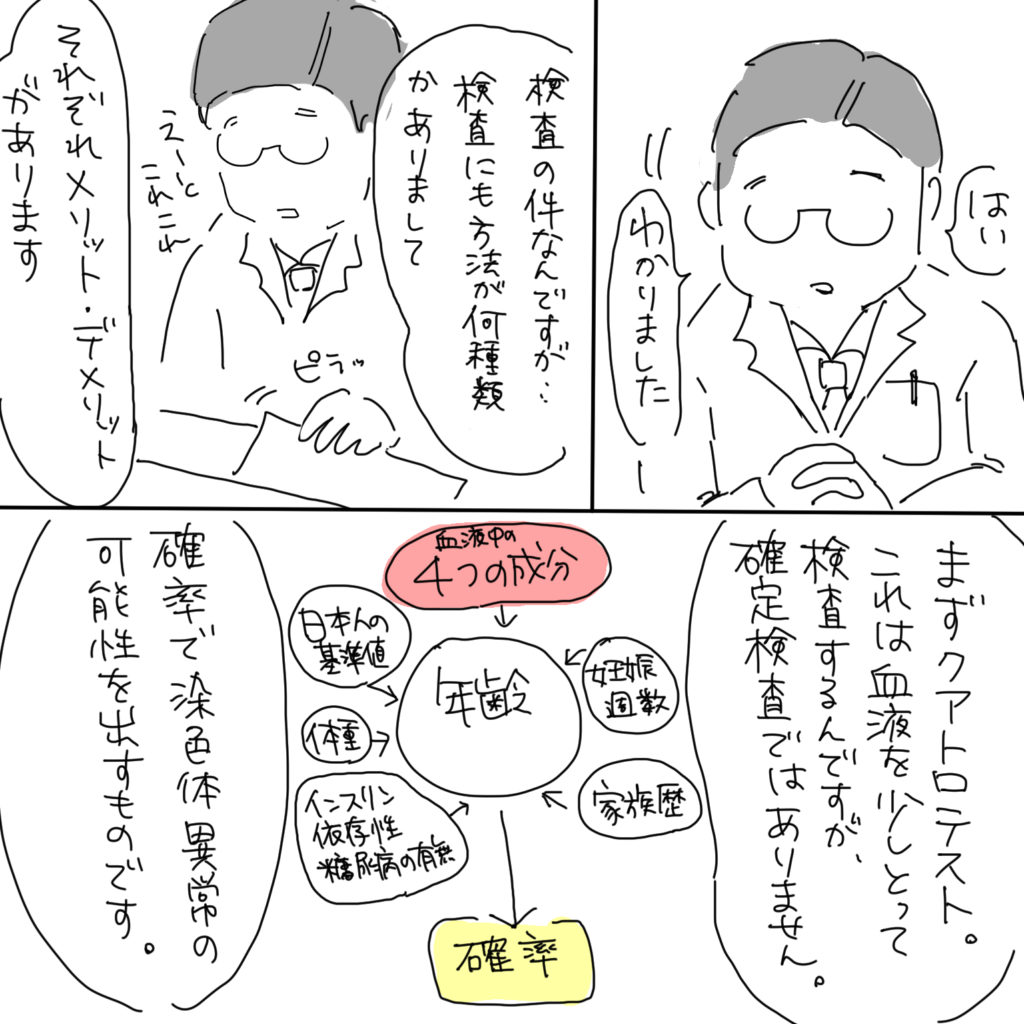 はい
わかりましたー
検査の件なんですが‥
検査にも方法が何種類
かありまして
えーと
これこれ
ピラッ
それぞれメリット・デメリット
があります
まずクアトロテスト。
これは血液を少しとって
検査するんですが、
確定検査ではありません。
血液中の
4つの成分
日本人の
基準値
年齢
妊娠
週数
体重
家族歴
インスリン
依存性
糖尿病の有無
確率
確率で染色体異常の
可能性を出すものです。